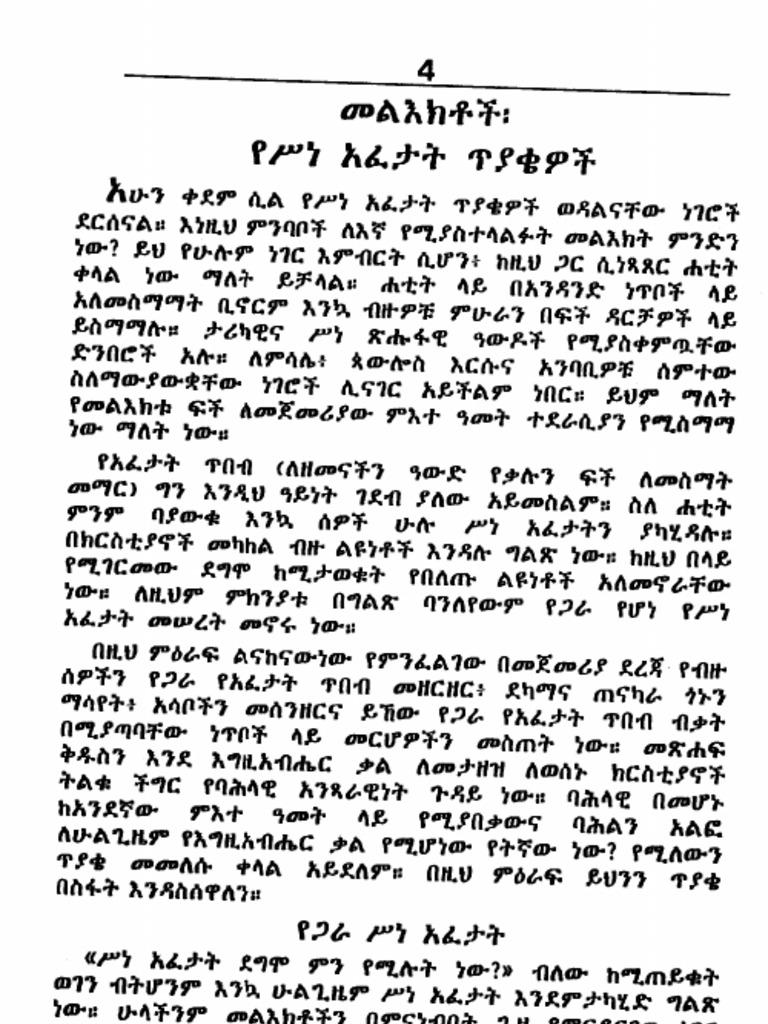 4
መልእክቶች፡
የሥነ አፈታት ጥያቄዎች
አሁን ቀደም ሲል የሥነ አፈታት ጥያቄዎች ወዳልናቸው ነገሮች
ደርሰናል። እነዚህ ምንባቦች ለእኛ የሚያስተላልፉት መልእክት ምንድን
ነው? ይህ የሁሉም ነገር እምብርት ሲሆን፥ ከዚህ ጋር ሲነጻጸር ሐቲት
ቀላል ነው ማለት ይቻላል። ሐቲት ላይ በአንዳንድ ነጥቦች ላይ
አለመስማማት ቢኖርም እንኳ ብዙዎቹ ምሁራን በፍች ዳርቻዎች ላይ
ይስማማሉ። ታሪካዊና ሥነ ጽሑፋዊ ዓውዶች የሚያስቀምጧቸው
ድንበሮች አሉ። ለምሳሌ፥ ጳውሎስ እርሱና አንባቢዎቹ ሰምተው
ስለማውያውቋቸው ነገሮች ሊናገር አይችልም ነበር። ይህም ማለት
የመልእክቱ ፍች ለመጀመሪያው ምእተ ዓመት ተደራሲያን የሚስማማ
ነው ማለት ነው።
የአፈታት ጥበብ (ለዘመናችን ዓውድ የቃሉን ፍች ለመስማት
መማር) ግን እንዲህ ዓይነት ገደብ ያለው አይመስልም። ስለ ሐቲት
ምንም ባያውቁ እንኳ ሰዎች ሁሉ ሥነ አፈታትን ያካሂዳሉ።
በክርስቲያኖች መካከል ብዙ ልዩነቶች እንዳሉ ግልጽ ነው። ከዚህ በላይ
የሚገርመው ደግሞ ከሚታወቁት የበለጡ ልዩነቶች አለመኖራቸው
ነው። ለዚህም ምክንያቱ በግልጽ ባንለየውም የጋራ የሆነ የሥነ
አፈታት መሠረት መኖሩ ነው።
በዚህ ምዕራፍ ልናከናውነው የምንፈልገው በመጀመሪያ ደረጃ የብዙ
ሰዎችን የጋራ የአፈታት ጥበብ መዘርዘር፥ ደካማና ጠናካራ ጎኑን
ማሳየት፥ አሳቦችን መሰንዘርና ይኸው የጋራ የአፈታት ጥበብ ብቃት
በሚያጣባቸው ነጥቦች ላይ መርሆዎችን መስጠት ነው። መጽሐፍ
ቅዱስን እንደ እግዚአብሔር ቃል ለመታዘዝ ለወሰኑ ክርስቲያኖች
ትልቁ ችግር የባሕላዊ አንጻራዊነት ጉዳይ ነው። ባሕላዊ በመሆኑ
ከአንደኛው ምእተ ዓመት ላይ የሚያበቃውና ባሕልን አልፎ
ለሁልጊዜም የእግዚአብሔር ቃል የሚሆነው የትኛው ነው? የሚለውን
ጥያቄ መመለሱ ቀላል አይደለም። በዚህ ምዕራፍ ይህንን ጥያቄ
በስፋት እንዳስሰዋለን።
የጋራ ሥነ አፈታት
«ሥነ አፈታት ደግሞ ምን የሚሉት ነው?» ብለው ከሚጠይቁት
ወገን ብትሆንም እንኳ ሁልጊዜም ሥነ አፈታት እንደምታካሂድ ግልጽ
ነው። ሁላችንም መልእክቶችን በምናነብበት ጊዜ